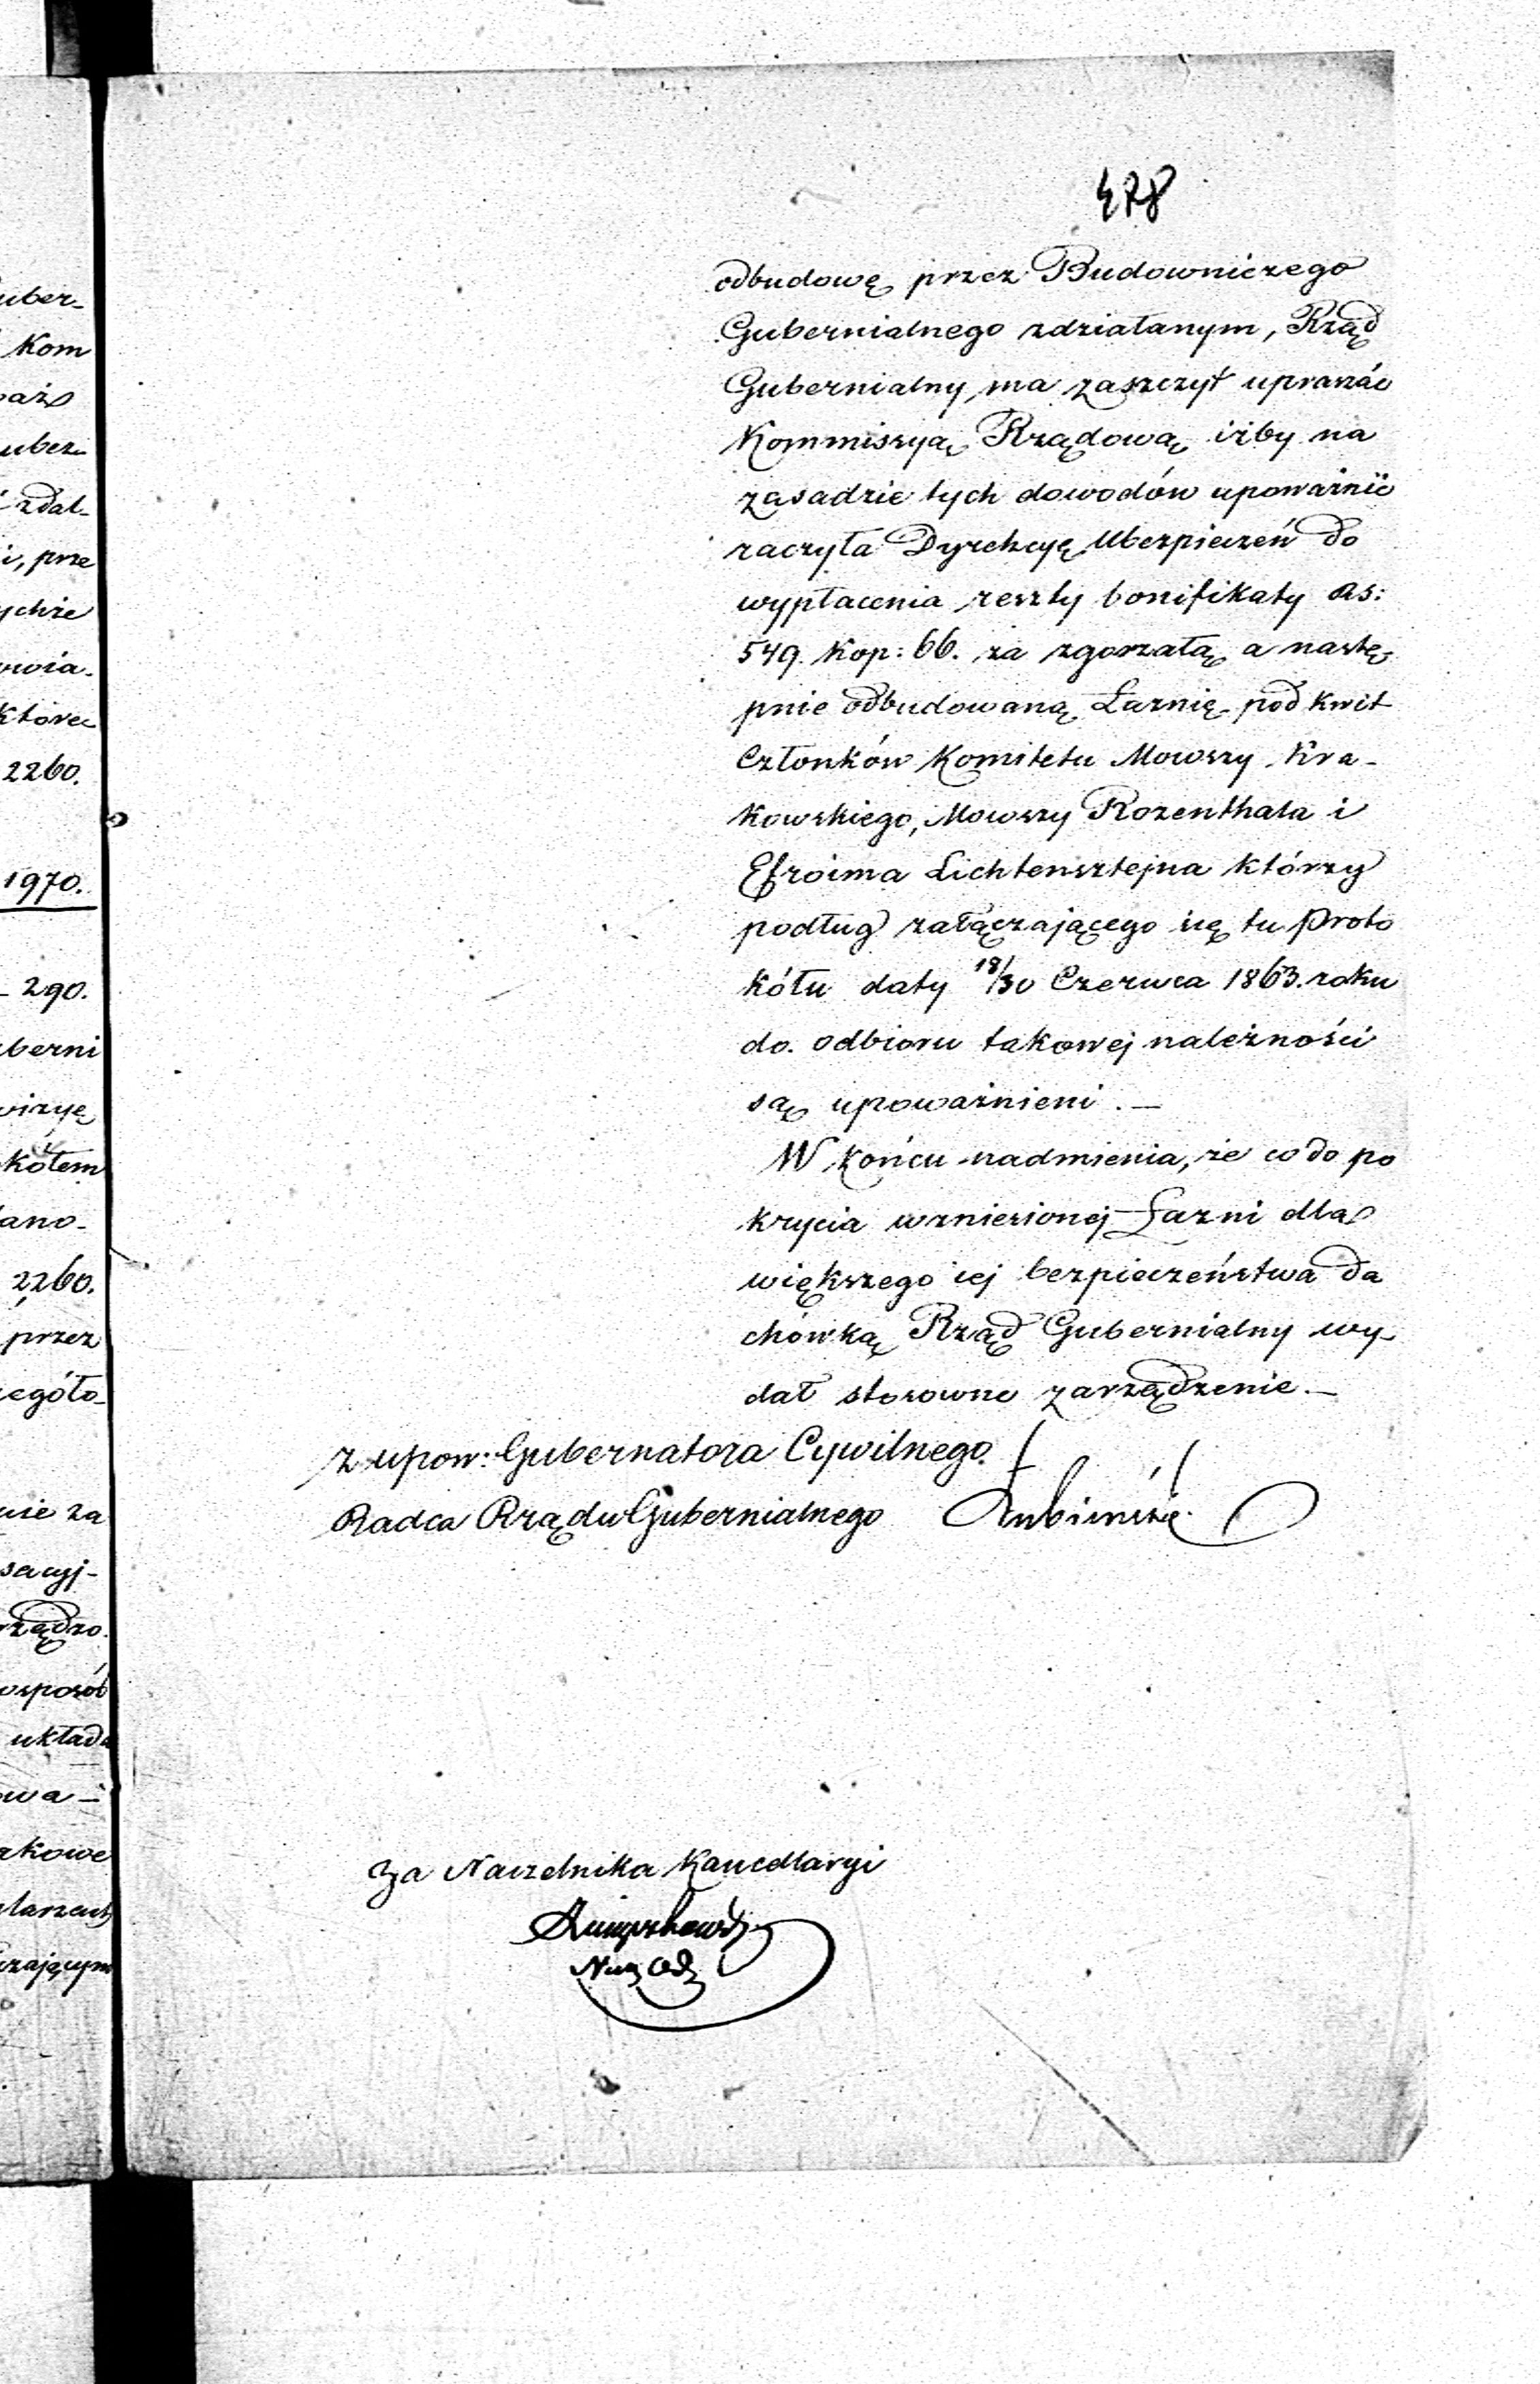 478
odbudowę przez Budowniczego
Gubernialnego zdziałanym, Rząd
Gubernialny, ma zaszczyt upraszać
Kommissyą Rządową iżby na
zasadzie tych dowodów upoważnić
raczyła Dyrekcyę Ubezpieczeń do
wypłacenia reszty bonifikaty Rs:
549. Kop: 66. za zgorzałą a nastę-
pnie odbudowaną Łaznię pod kwit
Członków Komitetu Mowszy Kra-
kowskiego, Mowszy Rozenthala i
Efroima Lichtensztejna którzy
podług załączającego się tu Proto
kółu daty 18/30 Czerwca 1863. roku
do odbioru takowej należności
są upoważnieni. —
W końcu nadmienia, że co do po
krycia wzniesionej Łazni dla
większego iej bezpieczeństwa da
chówką Rząd Gubernialny wy-
dał stosowne zarządzenie. —
z upow: Gubernatora Cywilnego.
Radca Rządu Gubernialnego
Za Naczelnika Kancellaryi
uber-
Kom
ubez-
zdal-
i, prze
ychże
owia-
które
2260.
1970.
290.
berni
wizyę
kółem
ano-
2260.
przez
egóło-
nie za
sacyj-
rządzo
osposób
układa
owa-
rkowe
zającym